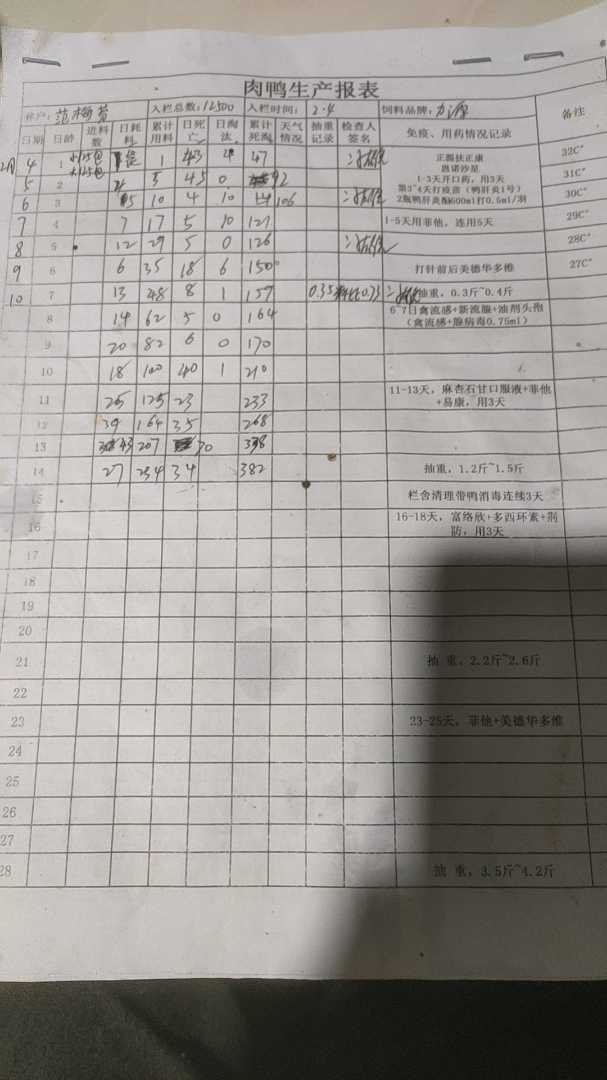 肉鸭生产报表
养户：范梅 入栏总数：12500 入栏时间：2.4 饲料品牌：力源 备注
日期 日龄 进料数 日耗料 累计用料 日死亡 日淘汰 累计死淘 天气情况 抽重记录 检查人签名 免疫、用药情况记录
2月 4 1 1 43 4 47 正肠扶正康 32C°
恩诺沙星
1-3天开口药，用3天
5 2 2 3 45 0 92 31C°
第3~4天打疫苗（鸭肝炎1号）
6 3 10 4 10 106 2瓶鸭肝炎配600ml打0.5ml/羽 30C°
7 4 7 17 5 10 121 1-5天用菲他，连用5天 29C°
8 5 12 29 5 0 126 28C°
9 6 6 35 18 6 150 打针前后美德华多维 27C°
10 7 13 48 8 1 159 0.35 抽重，0.3斤~0.4斤
8 14 62 5 0 164 6~7日禽流感+新流腺+油剂头孢
（禽流感+腺病毒0.75ml）
9 20 82 6 0 170
10 18 100 40 1 210
11 25 125 23 233 11-13天，麻杏石甘口服液+菲他
+易康，用3天
12 39 164 35 268
13 43 207 30
14 27 234 34 382 抽重，1.2斤~1.5斤
15 栏舍清理带鸭消毒连续3天
16 16-18天，富络欣+多西环素+荆
防，用3天
17
18
19
20
21 抽 重，2.2斤~2.6斤
22
23 23-25天，菲他+美德华多维
24
25
26
27
28 抽 重，3.5斤~4.2斤